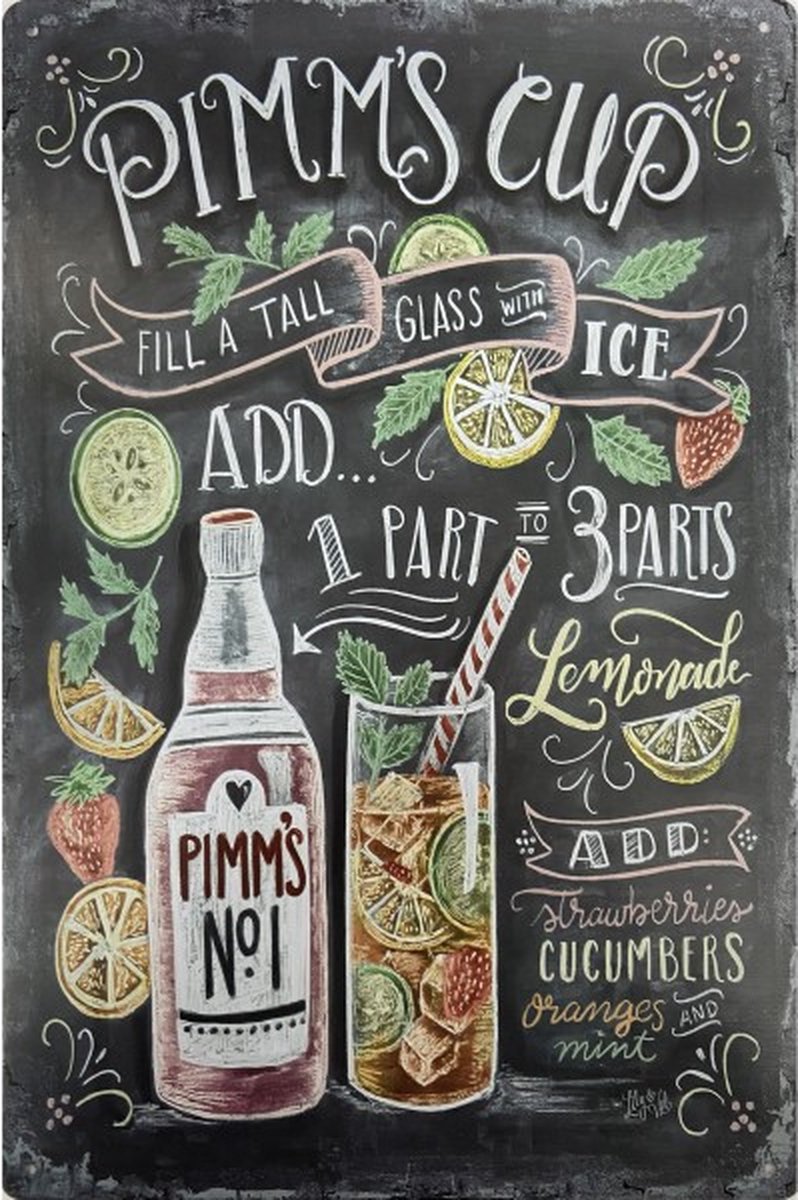 PIMM'S CUP
FILL A TALL GLASS WITH ICE
ADD...
1 PART TO 3 PARTS
Lemonade
PIMM'S
No. 1
ADD:
strawberries
CUCUMBERS
oranges AND
mint
Lily & Val